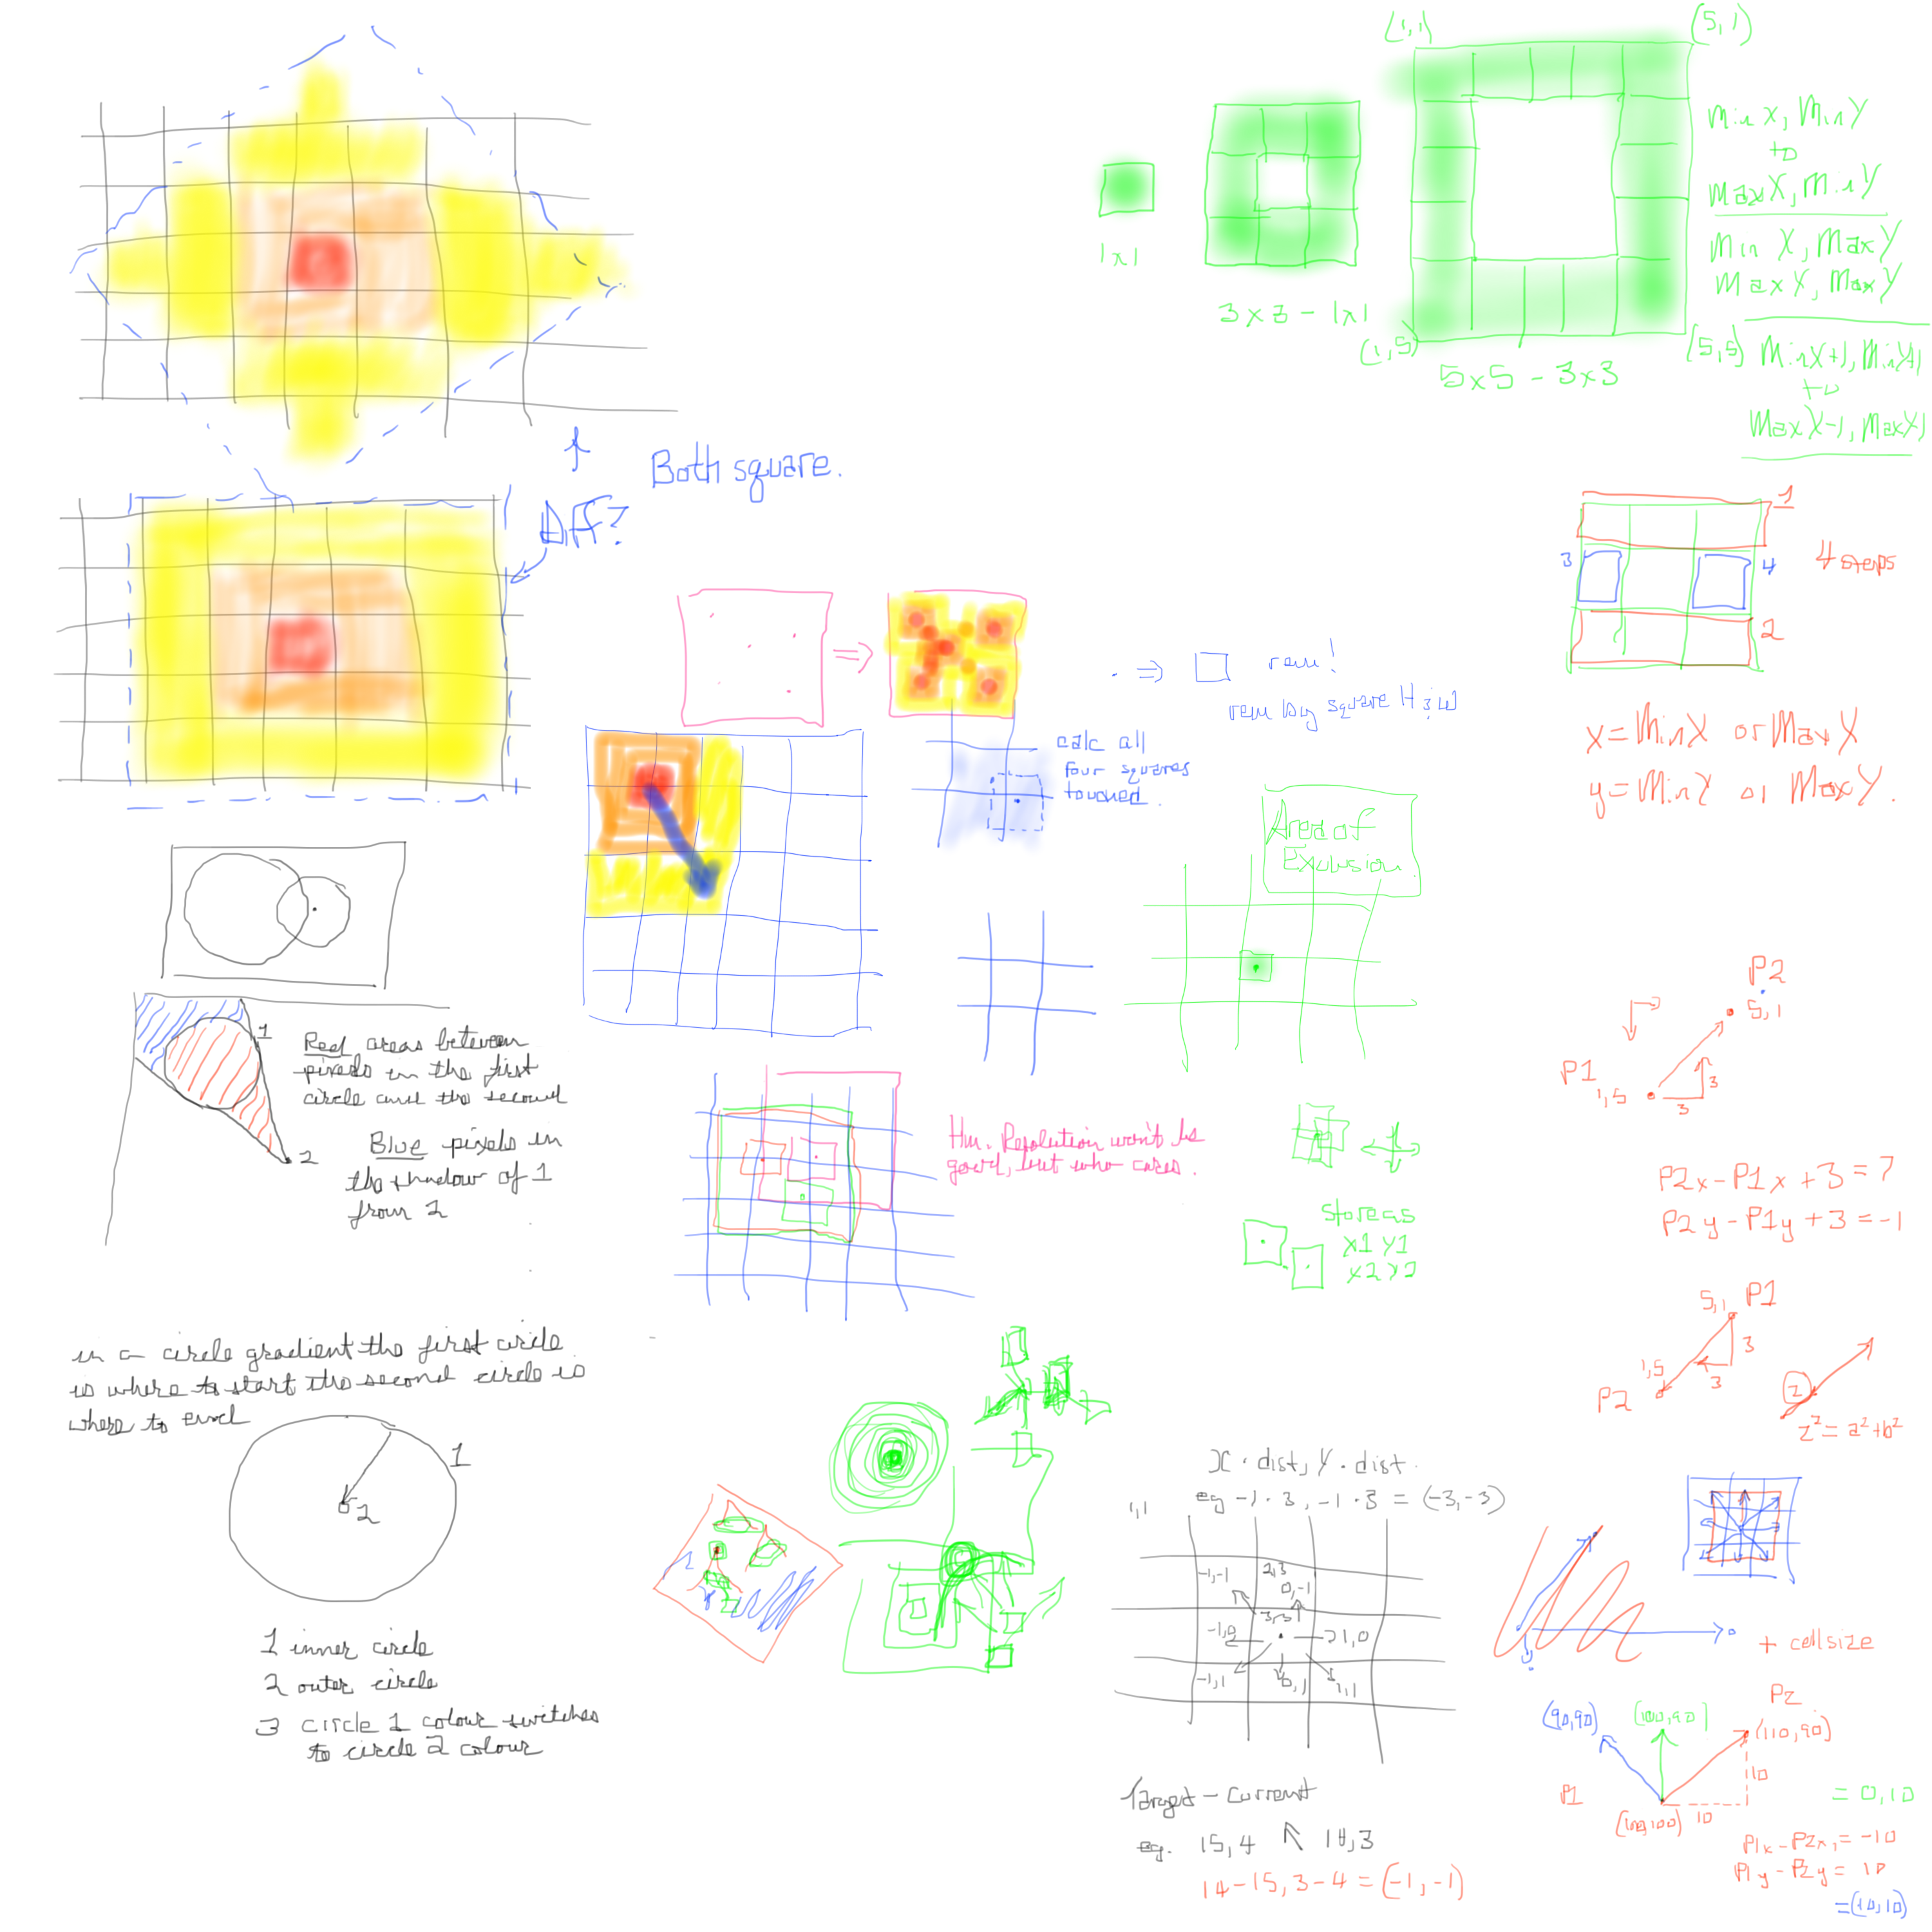 (1,1)
(5,1)
Min X, Min Y
to
Max X, Min Y
Min X, Max Y
Max X, Max Y
1x1
3x3 - 1x1
(1,5)
(5,5)
5x5 - 3x3
Min X+1, Min Y+1
to
Max X-1, Max Y-1
Both square.
Diff?
1
3
4
4 steps
2
x = Min X or Max X
y = Min Y or Max Y.
calc all
four squares
touched.
Area of
P2
5,1
P1
1,5
3
3
1
Red areas between
pixels in the first
circle and the second
2
Blue pixels in
the shadow of 1
from 2
Hm. Resolution won't be
good, but who cares.
store as
X1 Y1
X2 Y2
P2x - P1x + 3 = 7
P2y - P1y + 3 = -1
5,1 P1
3
1,5
3
P2
z
z² = a² + b²
in a circle gradient the first circle
is where to start the second circle is
where to end
1
2
1 inner circle
2 outer circle
3 circle 1 colour switches
to circle 2 colour
X · dist, Y · dist.
eg -1 · 3, -1 · 3 = (-3,-3)
1,1
-1,-1
2,3
0,-1
3,3
-1,0
1,0
-1,1
0,1
1,1
+ cell size
Target - Current
eg. 15,4 14,3
14-15, 3-4 = (-1,-1)
(90,90)
(100,90)
P2
(110,90)
10
P1
(100,100)
10
= 0,10
P1x - P2x = -10
P1y - P2y = 10
=(10,10)